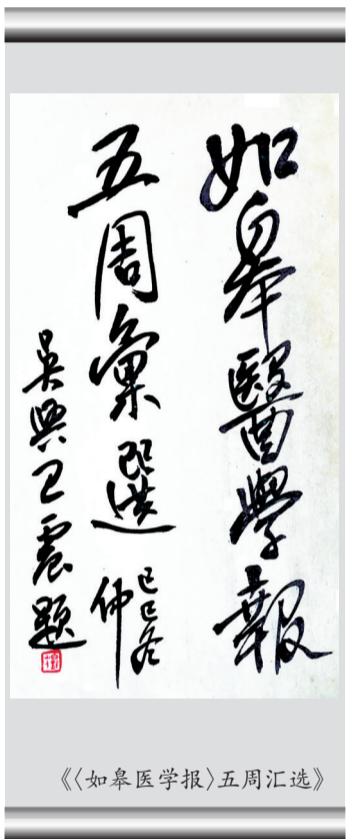 如皋醫學報
五周彙選
己巳冬
仲
吳興王震題
《〈如皋医学报〉五周汇选》